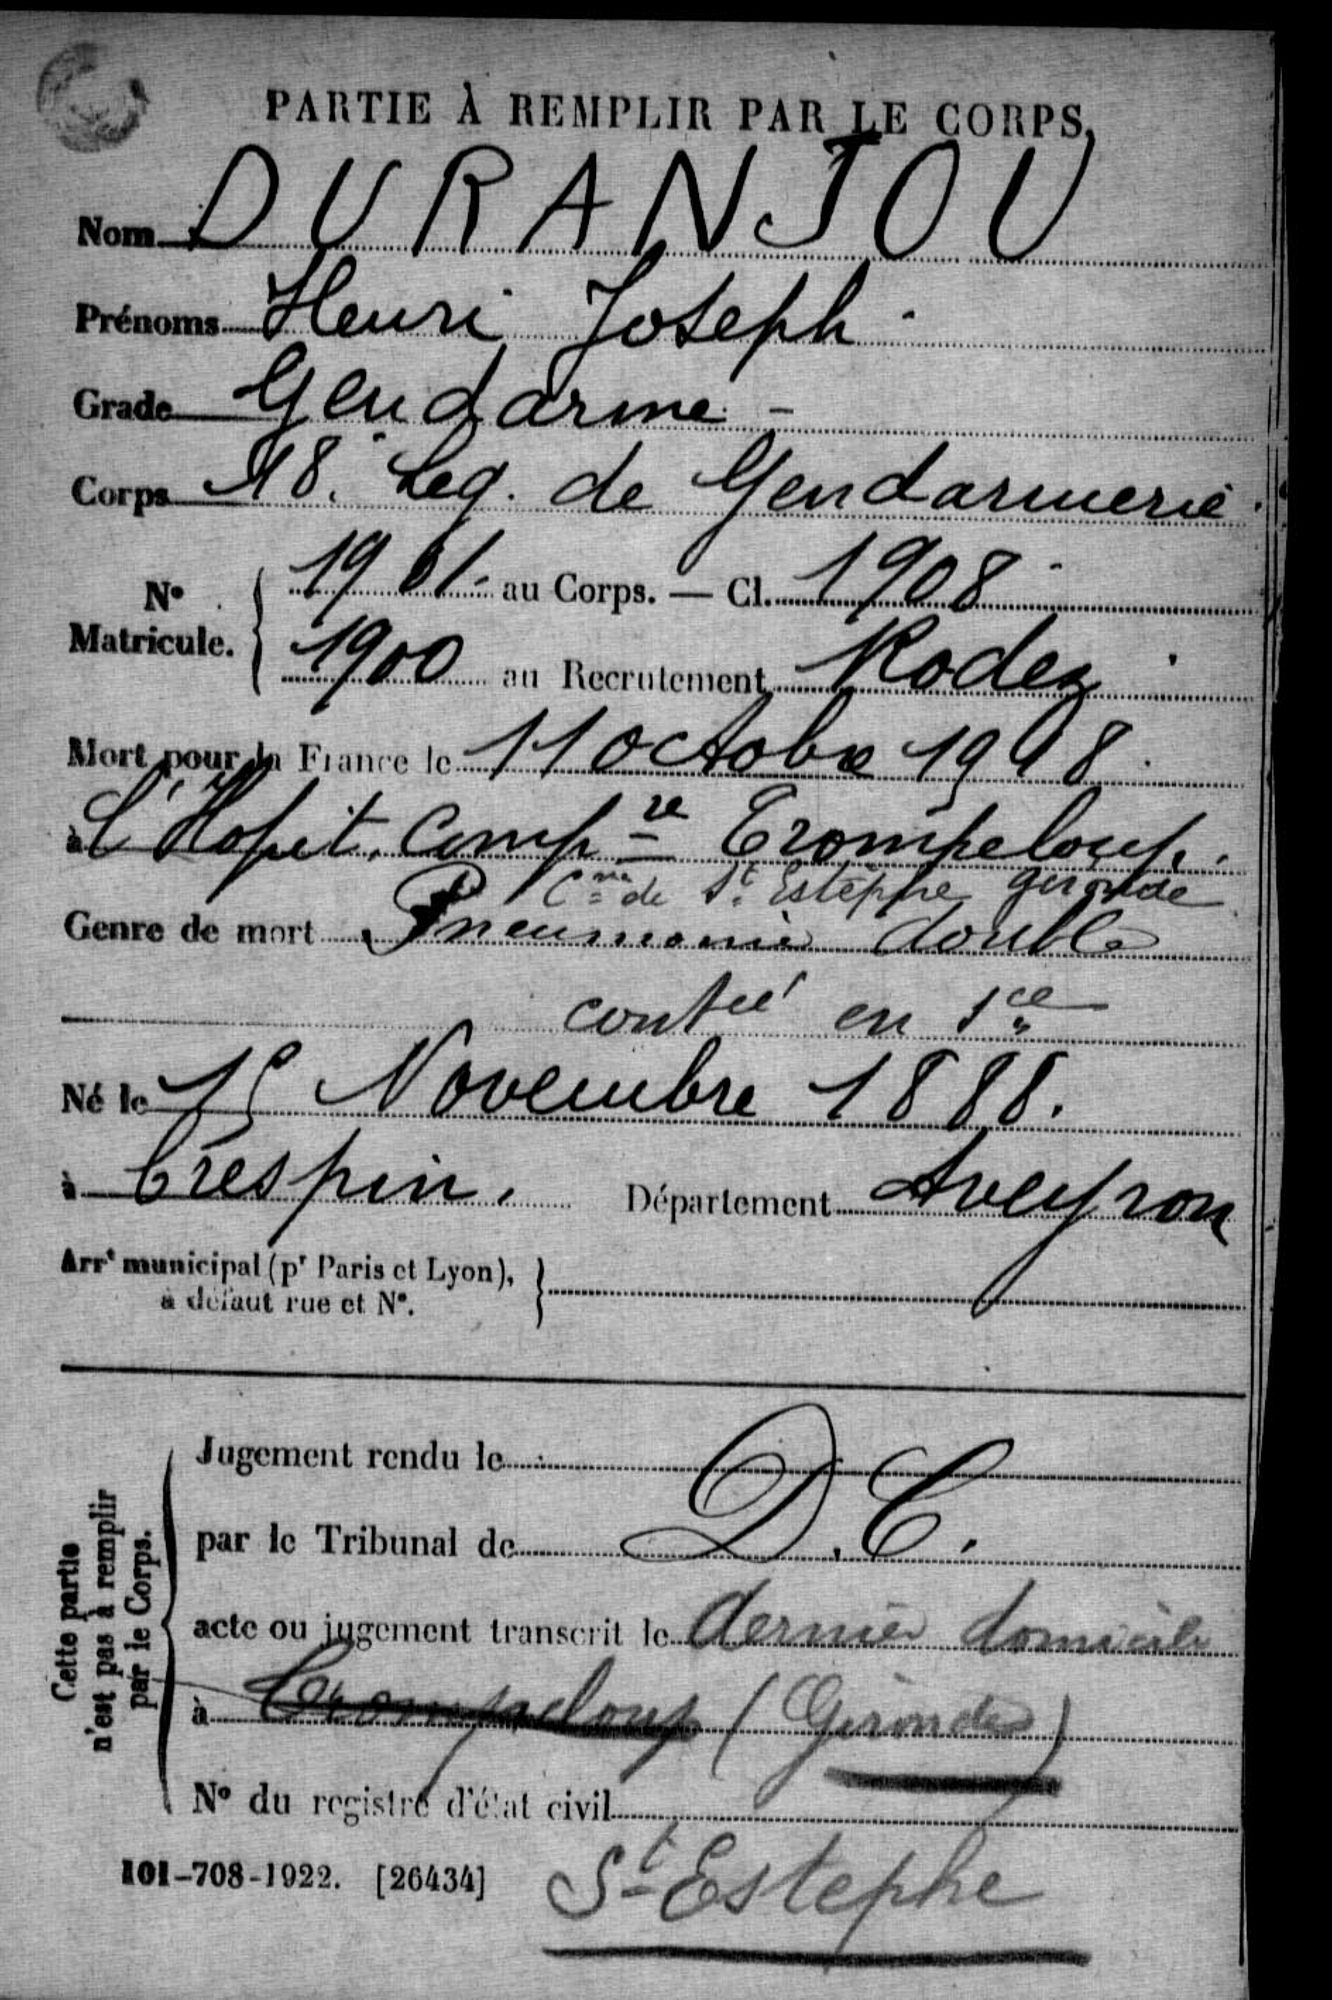 PARTIE À REMPLIR PAR LE CORPS.
Nom DURANJOU
Prénoms Henri Joseph
Grade Gendarme
Corps 18. Leg. de Gendarmerie
N° Matricule. 1961 au Corps. — Cl. 1908
1900 au Recrutement Rodez
Mort pour la France le 11 octobre 1918
à L'Hopit. Comp re Trompeloup.
Cne de St. Estèphe Gironde
Genre de mort Pneumonie double
contée en sce
Né le 15 Novembre 1888.
à Crespin. Département Aveyron
Arrt municipal (pr Paris et Lyon),
à défaut rue et N°.
Cette partie n'est pas à remplir par le Corps.
Jugement rendu le
par le Tribunal de D.C.
acte ou jugement transcrit le dernier domicile
à Trompeloup (Gironde)
N° du registre d'état civil
101-708-1922. [26434] St Estephe